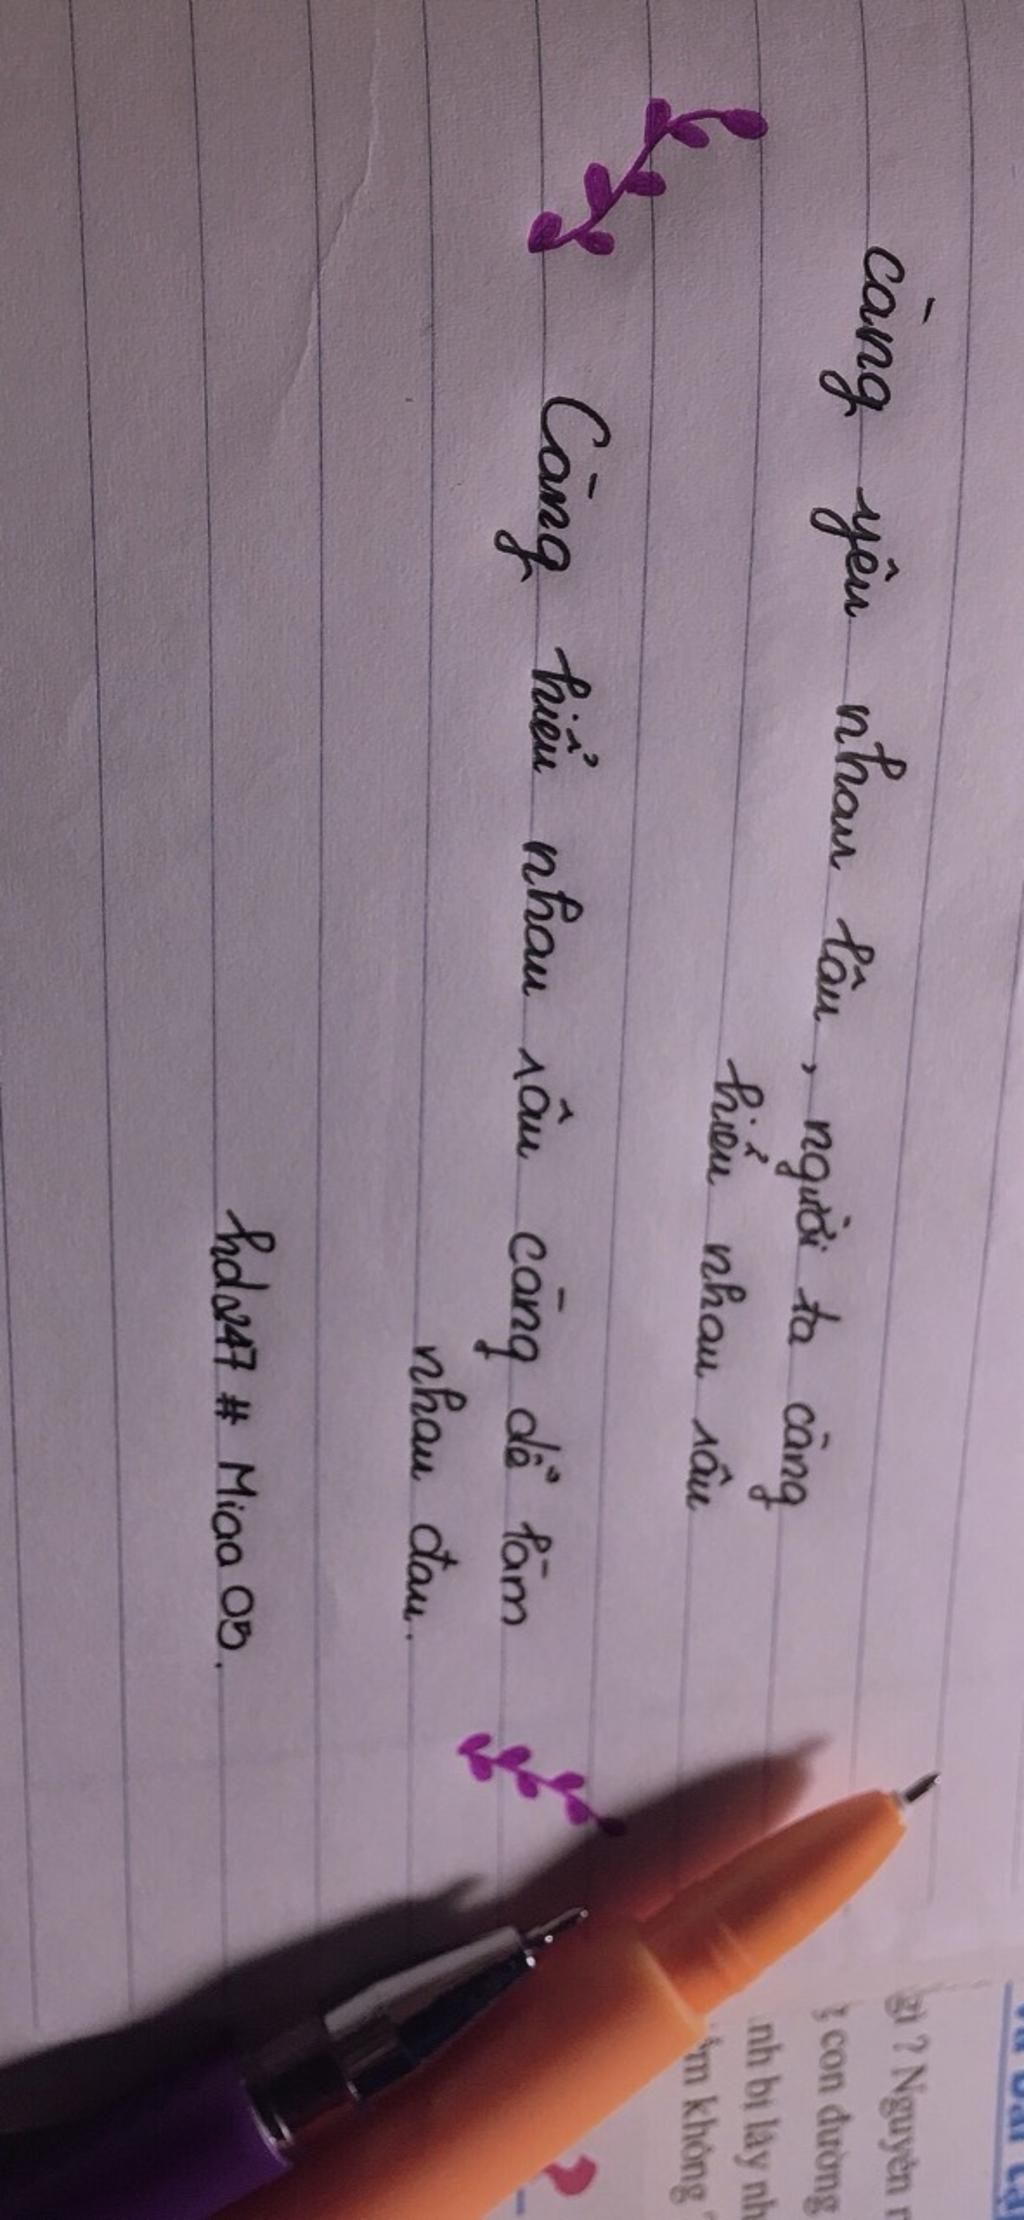 càng yêu nhau lâu, người ta càng
hiểu nhau sâu
Càng hiểu nhau sâu càng dể làm
nhau đau.
hda247 # Miaa 05.
gì ? Nguyên
con đường
nh bị lây nh
không